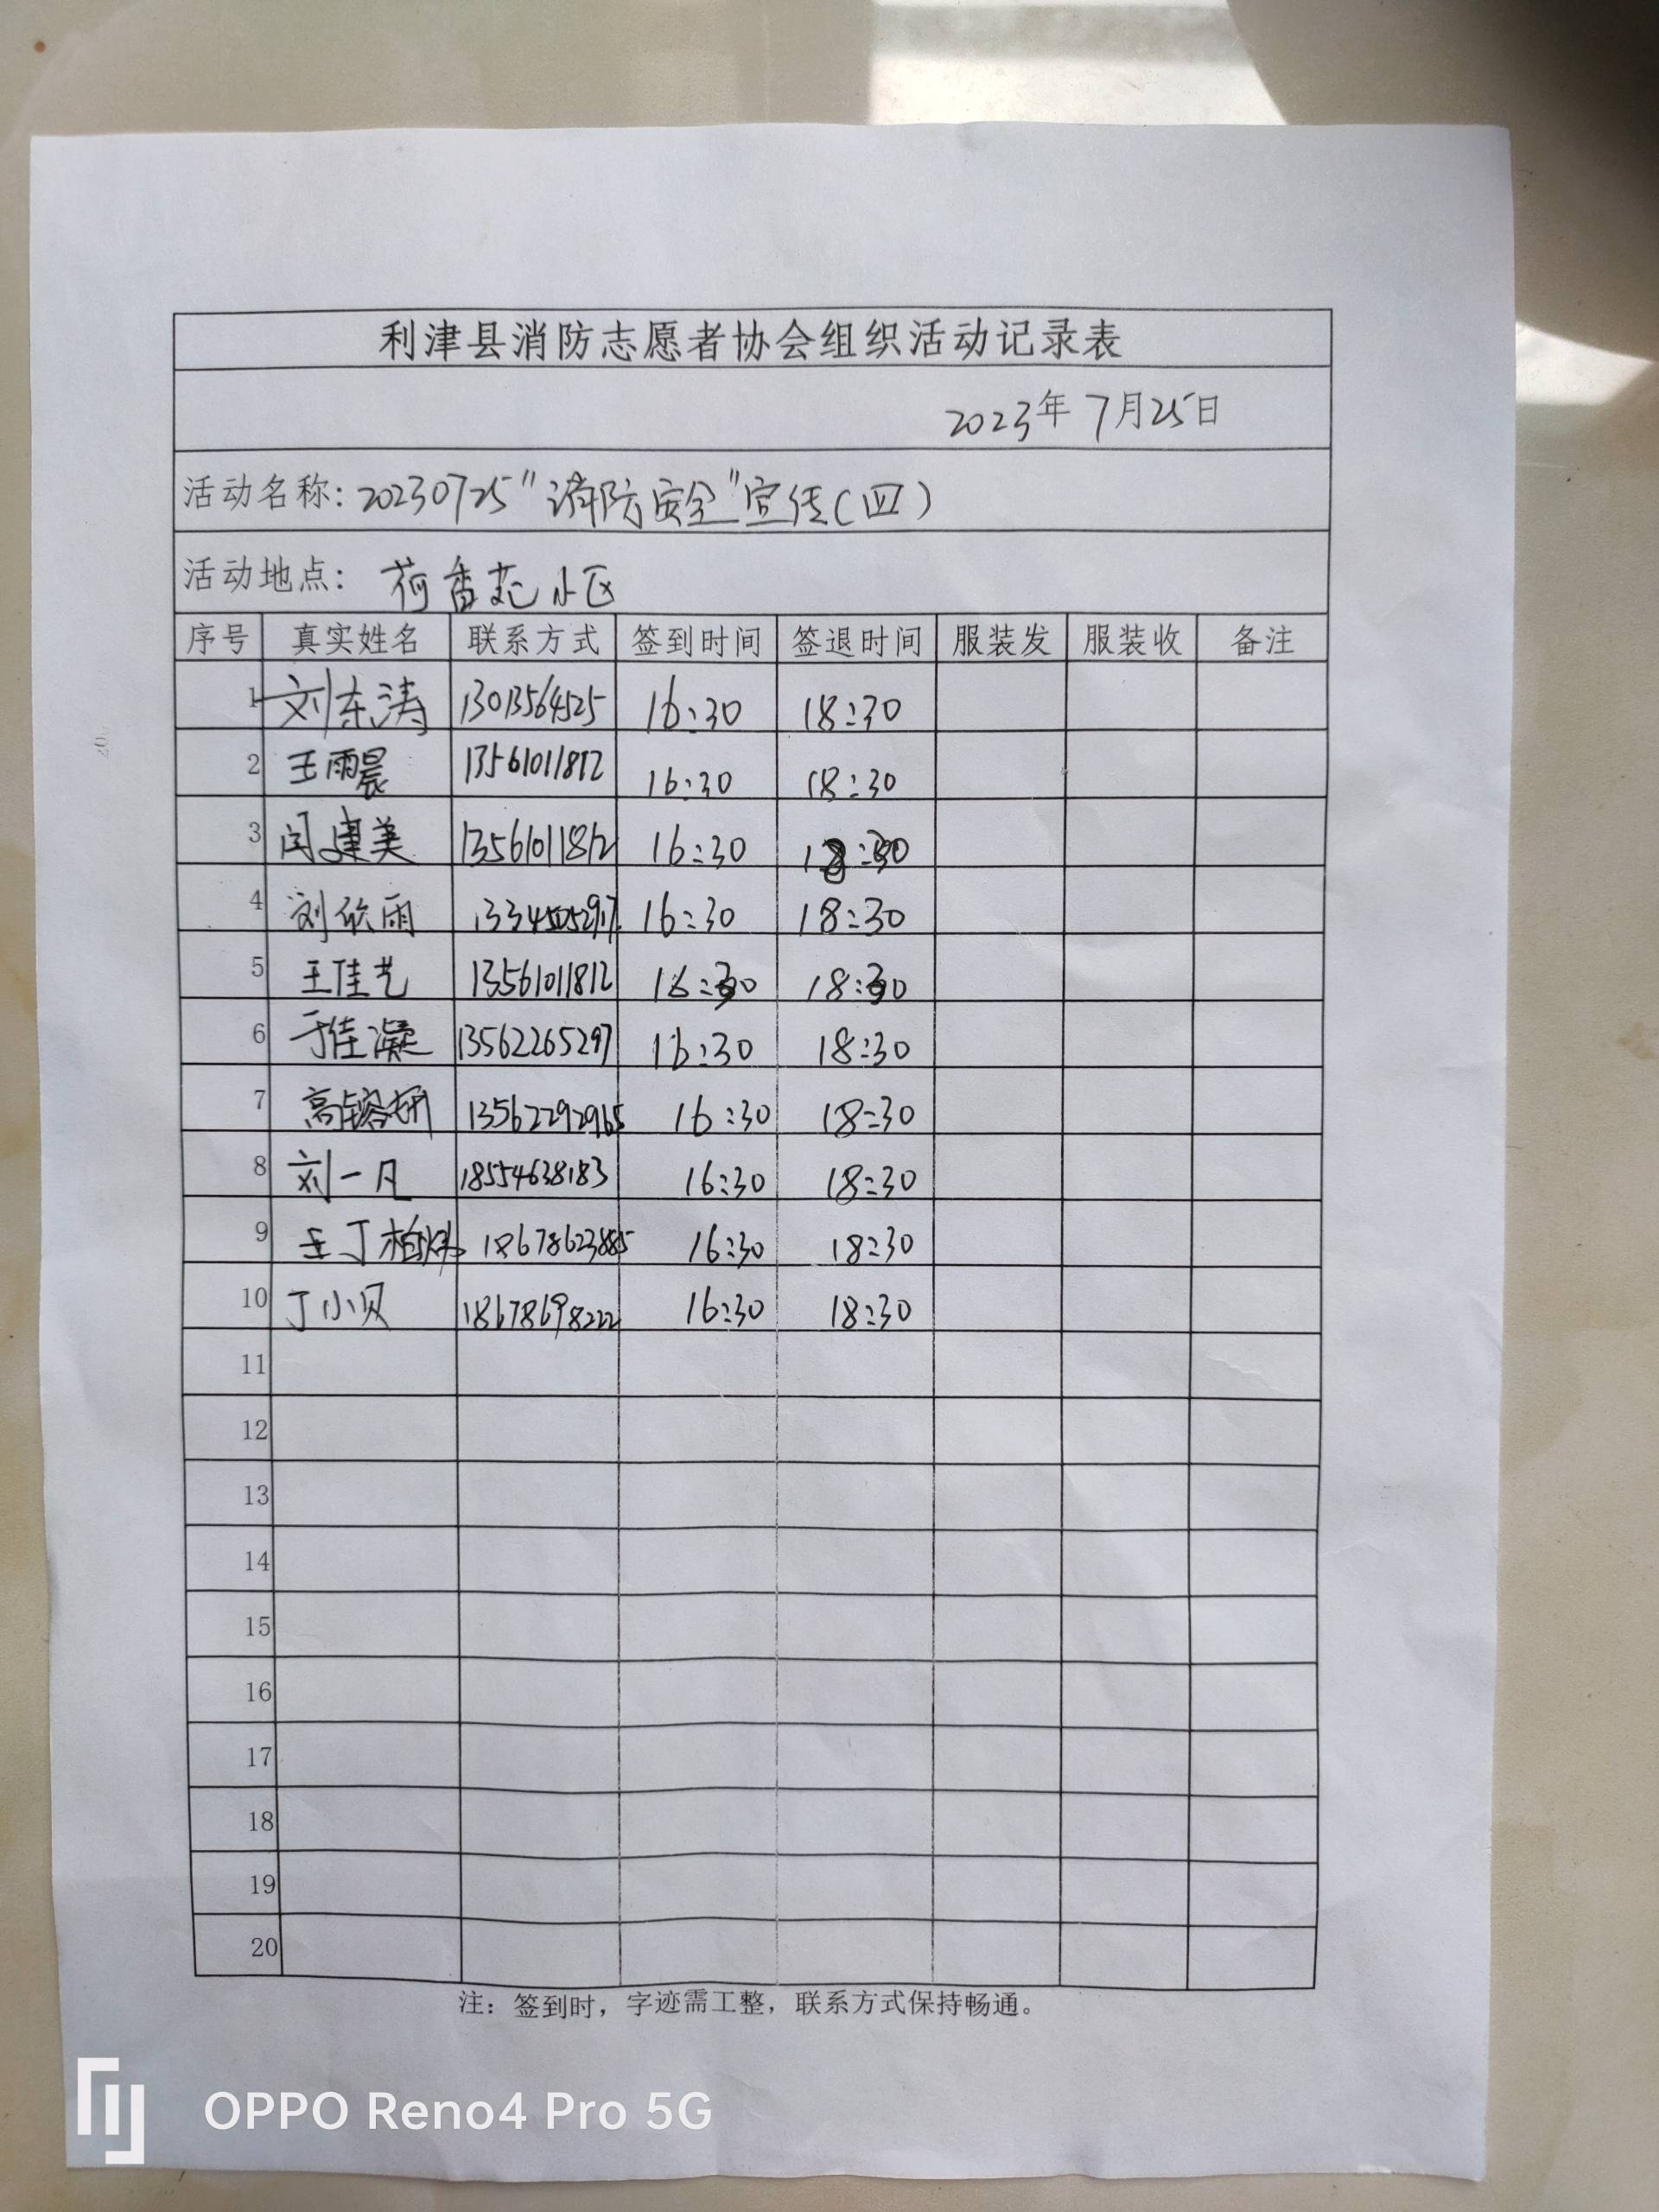 利津县消防志愿者协会组织活动记录表
2023年7月25日
活动名称:20230725"消防安全"宣传(四)
活动地点: 荷香苑小区
序号 真实姓名 联系方式 签到时间 签退时间 服装发 服装收 备注
1 刘东涛 13013564525 16:30 18:30
2 王雨晨 13561011812 16:30 18:30
3 闫建美 13561011812 16:30 18:30
4 刘欣雨 13345052917 16:30 18:30
5 王佳艺 13561011812 16:30 18:30
6 于佳凝 13562265297 16:30 18:30
7 高镕妍 13562292965 16:30 18:30
8 刘一凡 18554638183 16:30 18:30
9 王丁柏炜 18678623885 16:30 18:30
10 丁小贝 18678698222 16:30 18:30
11
12
13
14
15
16
17
18
19
20
注:签到时,字迹需工整,联系方式保持畅通。
OPPO Reno4 Pro 5G